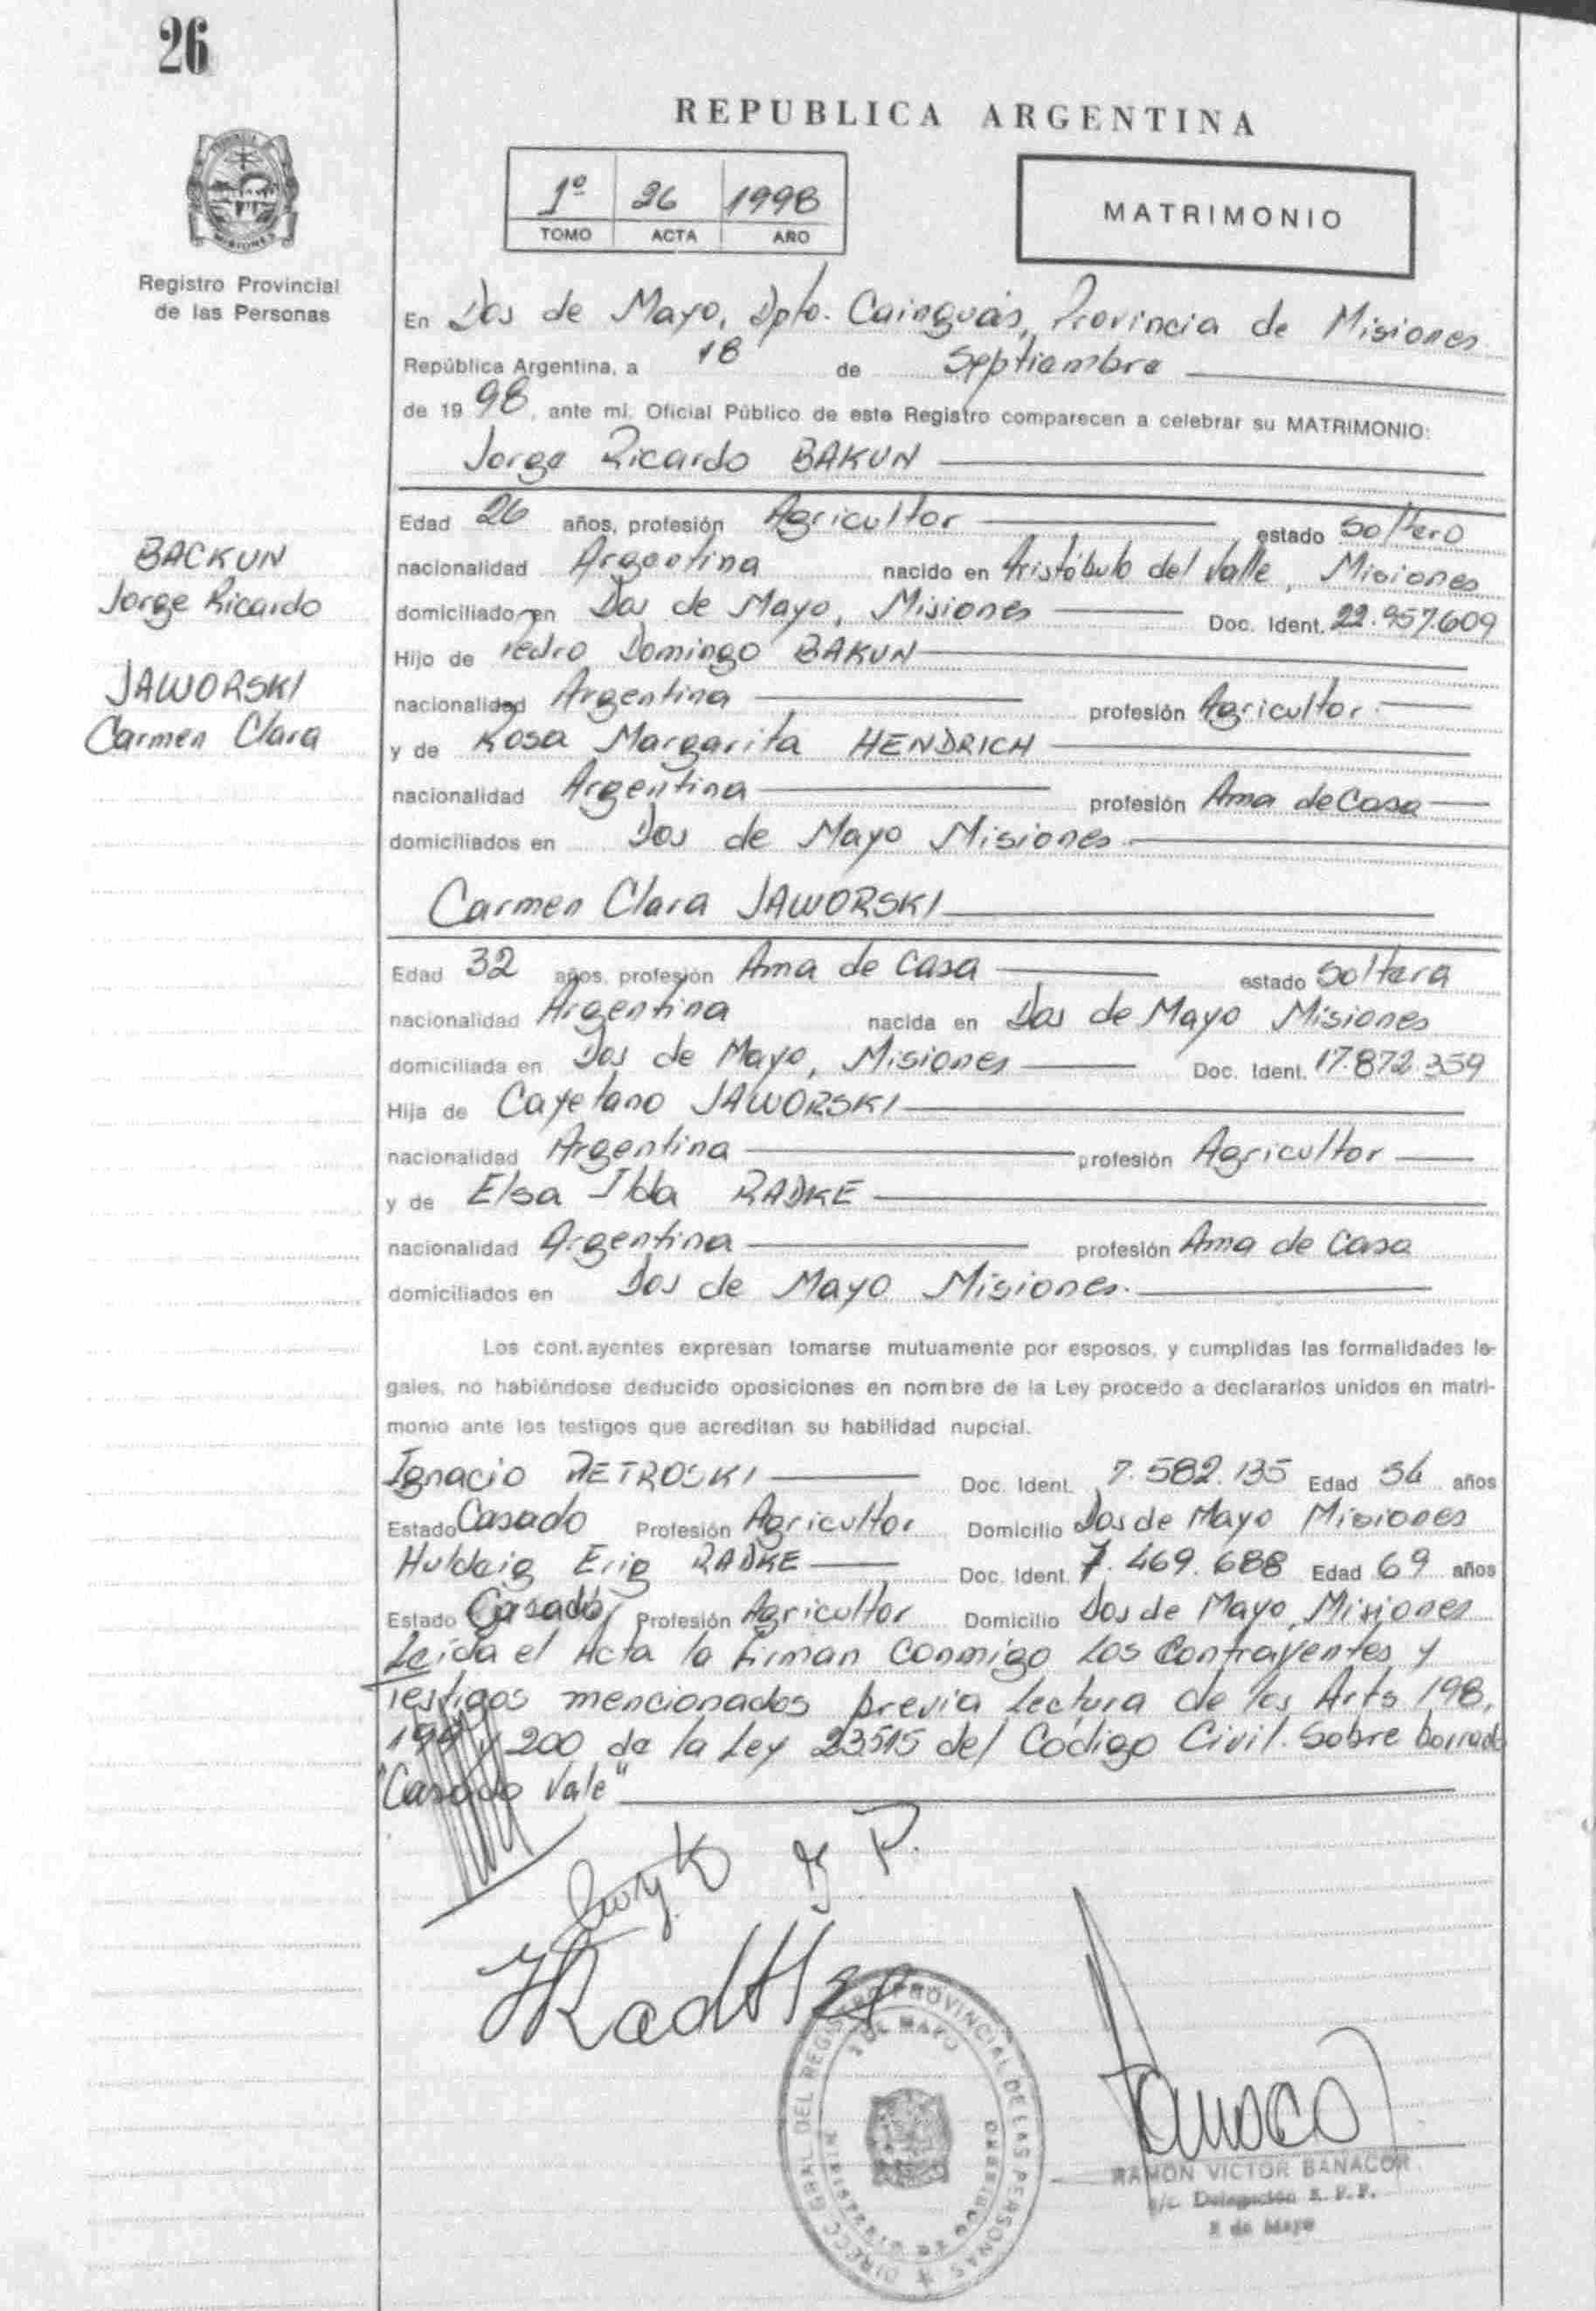 26
REPUBLICA ARGENTINA
1º 26 1998
TOMO ACTA AÑO
MATRIMONIO
Registro Provincial
de las Personas
En Dos de Mayo, Dpto. Cainguás, Provincia de Misiones
República Argentina, a 18 de Septiembre
de 1998, ante mi, Oficial Público de este Registro comparecen a celebrar su MATRIMONIO:
Jorge Ricardo BAKUN
BACKUN
Jorge Ricardo
JAWORSKI
Carmen Clara
Edad 26 años, profesión Agricultor estado Soltero
nacionalidad Argentina nacido en Aristóbulo del Valle, Misiones
domiciliado en Dos de Mayo, Misiones Doc. Ident. 22.957.609
Hijo de Pedro Domingo BAKUN
nacionalidad Argentina profesión Agricultor
y de Rosa Margarita HENDRICH
nacionalidad Argentina profesión Ama de Casa
domiciliados en Dos de Mayo Misiones
Carmen Clara JAWORSKI
Edad 32 años, profesión Ama de Casa estado Soltera
nacionalidad Argentina nacida en Dos de Mayo Misiones
domiciliada en Dos de Mayo, Misiones Doc. Ident. 17.872.359
Hija de Cayetano JAWORSKI
nacionalidad Argentina profesión Agricultor
y de Elsa Ilda RADKE
nacionalidad Argentina profesión Ama de Casa
domiciliados en Dos de Mayo Misiones.
Los cont.ayentes expresan tomarse mutuamente por esposos, y cumplidas las formalidades le-
gales, no habiéndose deducido oposiciones en nombre de la Ley procedo a declararlos unidos en matri-
monio ante los testigos que acreditan su habilidad nupcial.
Ignacio PETROSKI Doc. Ident. 7.582.135 Edad 56 años
Estado Casado Profesión Agricultor Domicilio Dos de Mayo Misiones
Huldeig Erig RADKE Doc. Ident. 7.469.688 Edad 69 años
Estado Casado Profesión Agricultor Domicilio Dos de Mayo, Misiones
Leída el Acta la firman conmigo los Contrayentes y
Testigos mencionados previa lectura de los Arts 198,
199 y 200 de la Ley 23515 del Código Civil. Sobre borrado
"Casado Vale"
J P.
DIRECC. GRAL. DEL REGISTRO PROVINCIAL DE LAS PERSONAS
2 DE MAYO
MISIONES
RAMON VICTOR BANACOR
a/c. Delegación R. P. P.
2 de Mayo